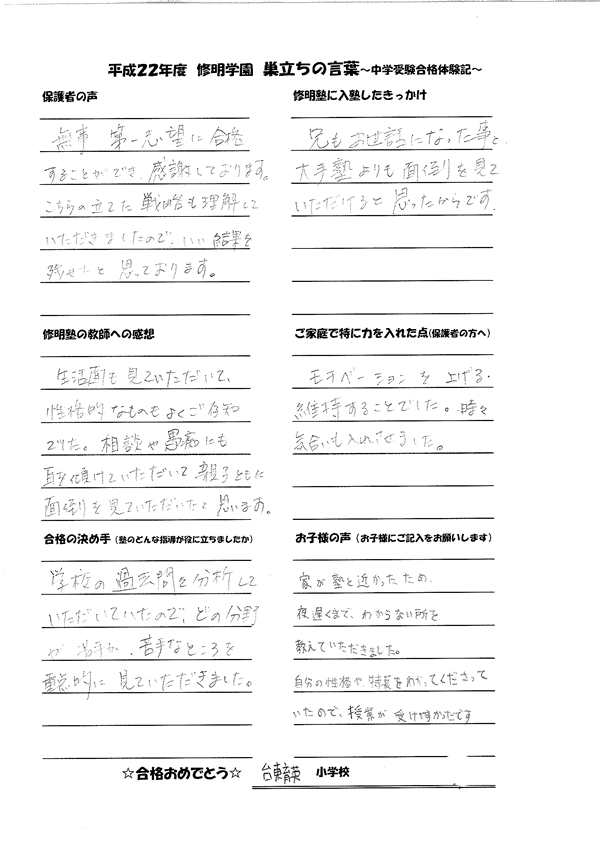 平成22年度 修明学園 巣立ちの言葉～中学受験合格体験記～
保護者の声
無事 第一志望に合格
することができ、感謝しております。
こちらの立てた戦略も理解して
いただきましたので、いい結果を
残せたと思っております。
修明塾に入塾したきっかけ
兄もお世話になった事と、
大手塾よりも面倒を見て
いただけると思ったからです。
修明塾の教師への感想
生活面も見ていただいて、
性格的なものもよくご存知
でした。相談や愚痴にも
耳を傾けていただいて、親子ともに
面倒を見ていただいたと思います。
ご家庭で特に力を入れた点(保護者の方へ)
モチベーションを上げる・
維持することでした。時々
気合いも入れさせました。
合格の決め手（塾のどんな指導が役に立ちましたか）
学校の過去問を分析して
いただいていたので、どの分野
が 、苦手なところを
重点的に見ていただきました。
お子様の声（お子様にご記入をお願いします）
家が塾と近かったため、
夜遅くまで、わからない所を
教えていただきました。
自分の性格や、特長をわかってくださって
いたので、授業が受けやすかったです
☆合格おめでとう☆ 台東育英 小学校